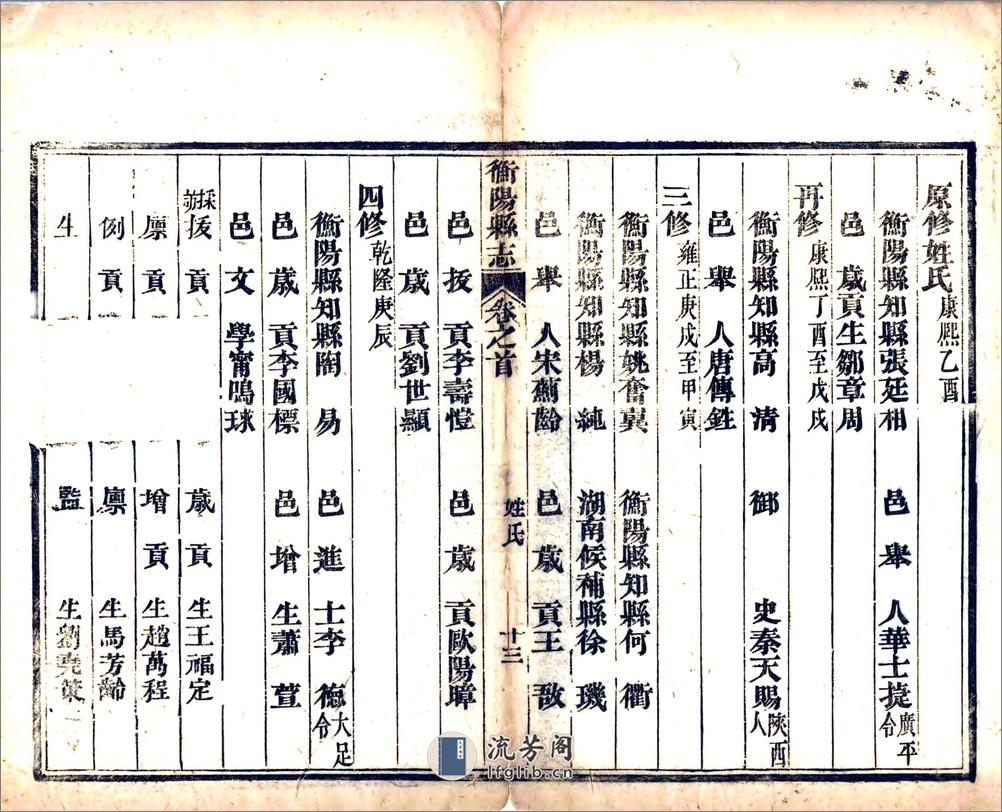 原修姓氏康熙乙酉
衡陽縣知縣張廷相 邑舉人華士捷廣平令
邑歲貢生鄒章周
再修康熙丁酉至戊戌
衡陽縣知縣高清 御史秦天賜陝西人
邑舉人唐傳鉎
三修雍正庚戌至甲寅
衡陽縣知縣姚奮翼 衡陽縣知縣何衢
衡陽縣知縣楊純 湖南候補縣徐璣
邑舉人宋薊齡 邑歲貢王敔
衡陽縣志 卷之首 姓氏 十三
邑拔貢李壽愷 邑歲貢歐陽暲
邑歲貢劉世顯
四修乾隆庚辰
衡陽縣知縣陶易 邑進士李德大足令
邑歲貢李國標 邑增生蕭萱
邑文學甯鳴球
採訪拔貢 歲貢生王福定
廩貢 增貢生趙萬程
例貢 廩生馬芳齡
生 監生劉堯策
流芳阁
lfglib.cn